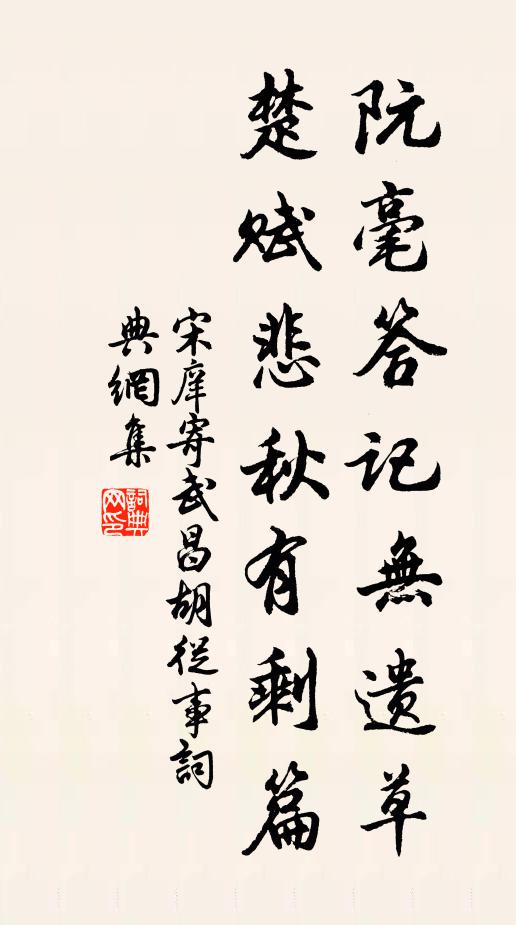 阮毫答记無遗草
楚赋悲秋有剩篇
宋庠寄武昌胡從事詞
典網集
詞典網印